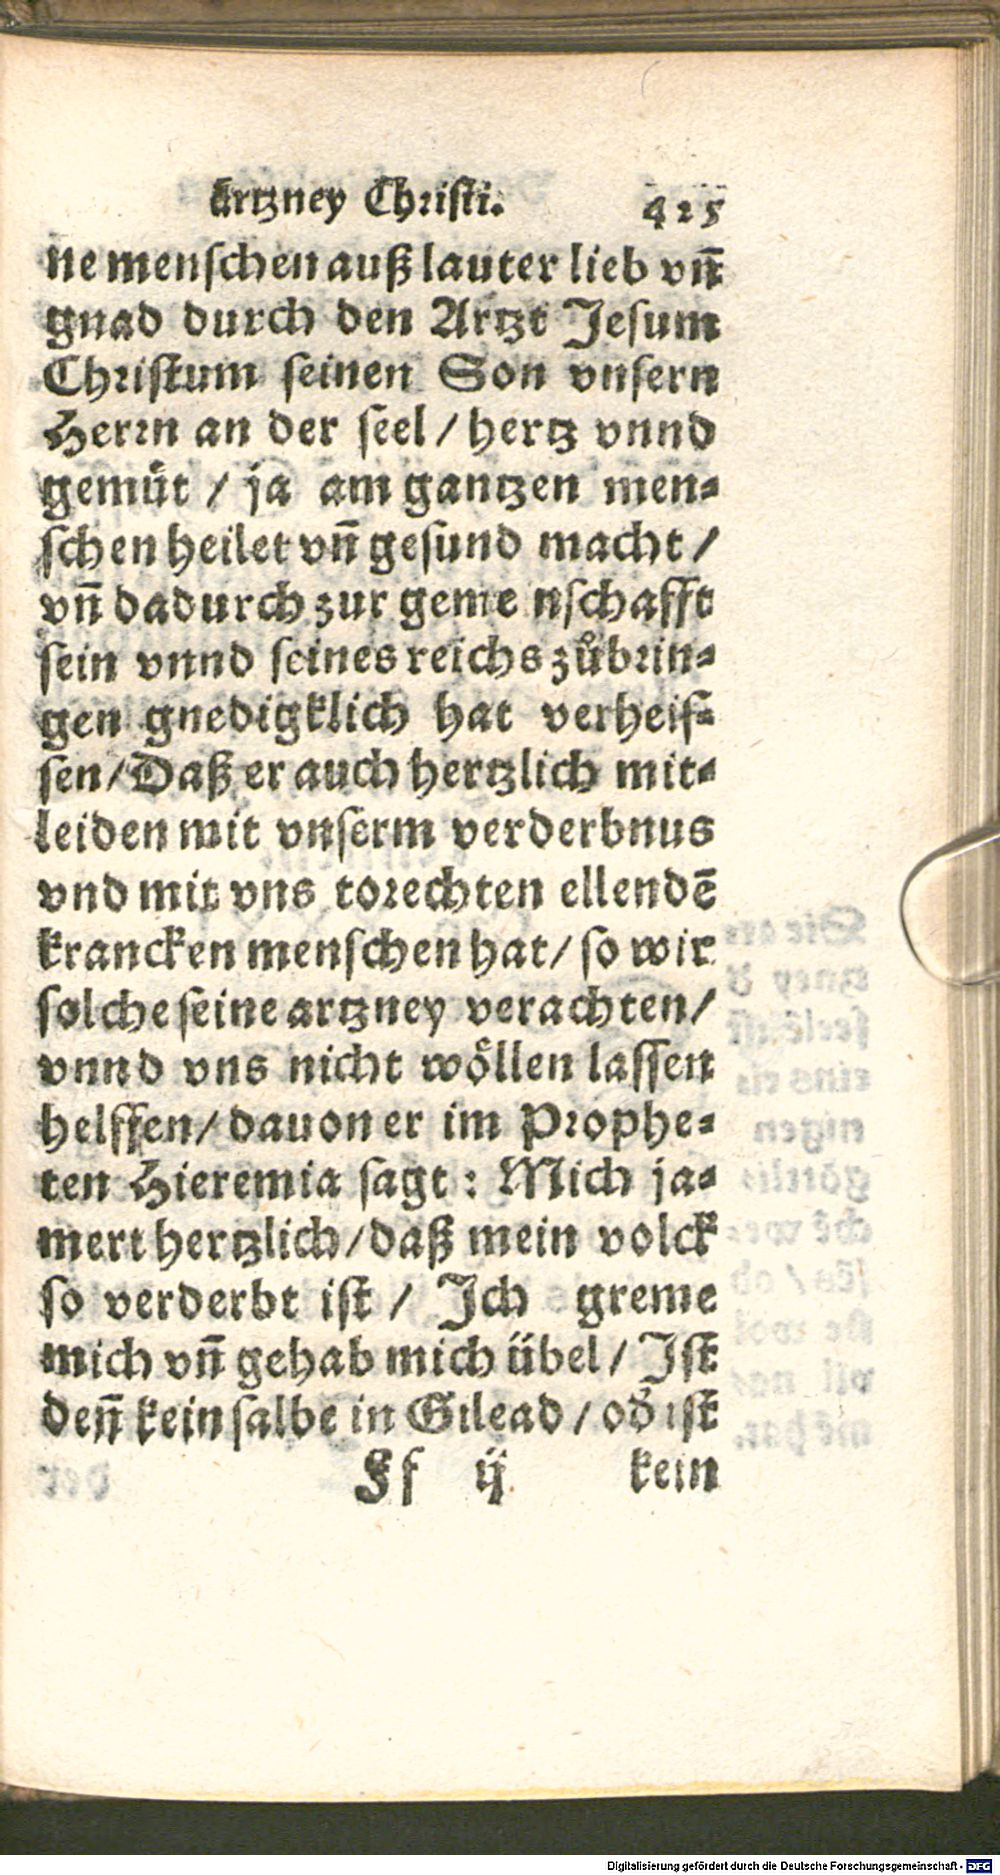 artzney Christi. 425
ne menschen auß lauter lieb vñ
gnad durch den Artzt Jesum
Christum seinen Son vnsern
Herrn an der seel / hertz vnnd
gemüt / ja am gantzen men⸗
schen heilet vñ gesund macht /
vñ dadurch zur geme nschafft
sein vnnd seines reichs zůbrin⸗
gen gnedigklich hat verheis⸗
sen / Daß er auch hertzlich mit⸗
leiden mit vnserm verderbnus
vnd mit vns torechten ellendē
krancken menschen hat / so wir
solche seine artzney verachten /
vnnd vns nicht wöllen lassen
helffen / dauon er im Prophe⸗
ten Hieremia sagt : Mich ja⸗
mert hertzlich / daß mein volck
so verderbt ist / Ich greme
mich vñ gehab mich übel / Ist
deñ kein salbe in Gilead / od' ist
Ff ij kein
Digitalisierung gefördert durch die Deutsche Forschungsgemeinschaft - DFG